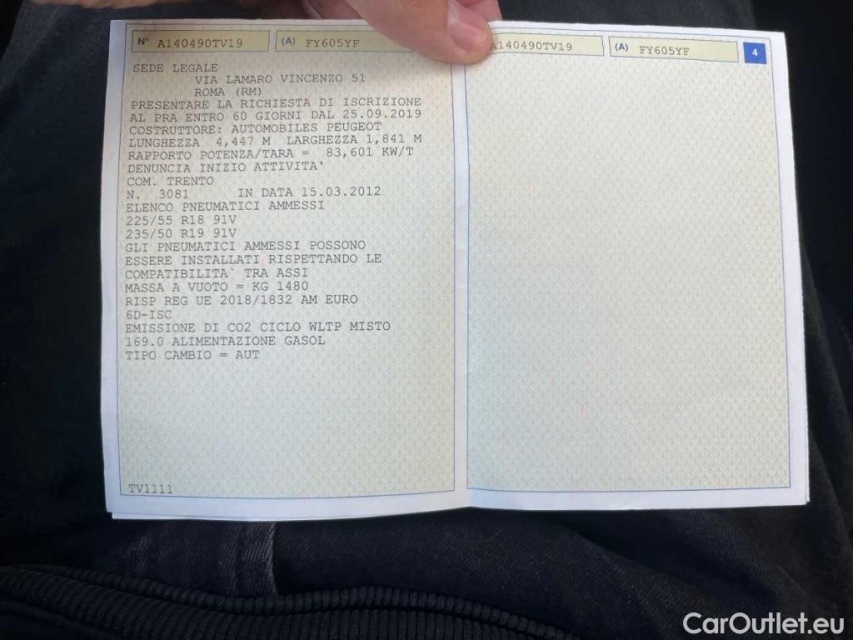 N° A140490TV19 (A) FY605YF
SEDE LEGALE
VIA LAMARO VINCENZO 51
ROMA (RM)
PRESENTARE LA RICHIESTA DI ISCRIZIONE
AL PRA ENTRO 60 GIORNI DAL 25.09.2019
COSTRUTTORE: AUTOMOBILES PEUGEOT
LUNGHEZZA 4,447 M LARGHEZZA 1,841 M
RAPPORTO POTENZA/TARA = 83,601 KW/T
DENUNCIA INIZIO ATTIVITA'
COM. TRENTO
N. 3081 IN DATA 15.03.2012
ELENCO PNEUMATICI AMMESSI
225/55 R18 91V
235/50 R19 91V
GLI PNEUMATICI AMMESSI POSSONO
ESSERE INSTALLATI RISPETTANDO LE
COMPATIBILITA` TRA ASSI
MASSA A VUOTO = KG 1480
RISP REG UE 2018/1832 AM EURO
6D-ISC
EMISSIONE DI CO2 CICLO WLTP MISTO
169.0 ALIMENTAZIONE GASOL
TIPO CAMBIO = AUT
TV1111
A140490TV19 (A) FY605YF 4
CarOutlet.eu